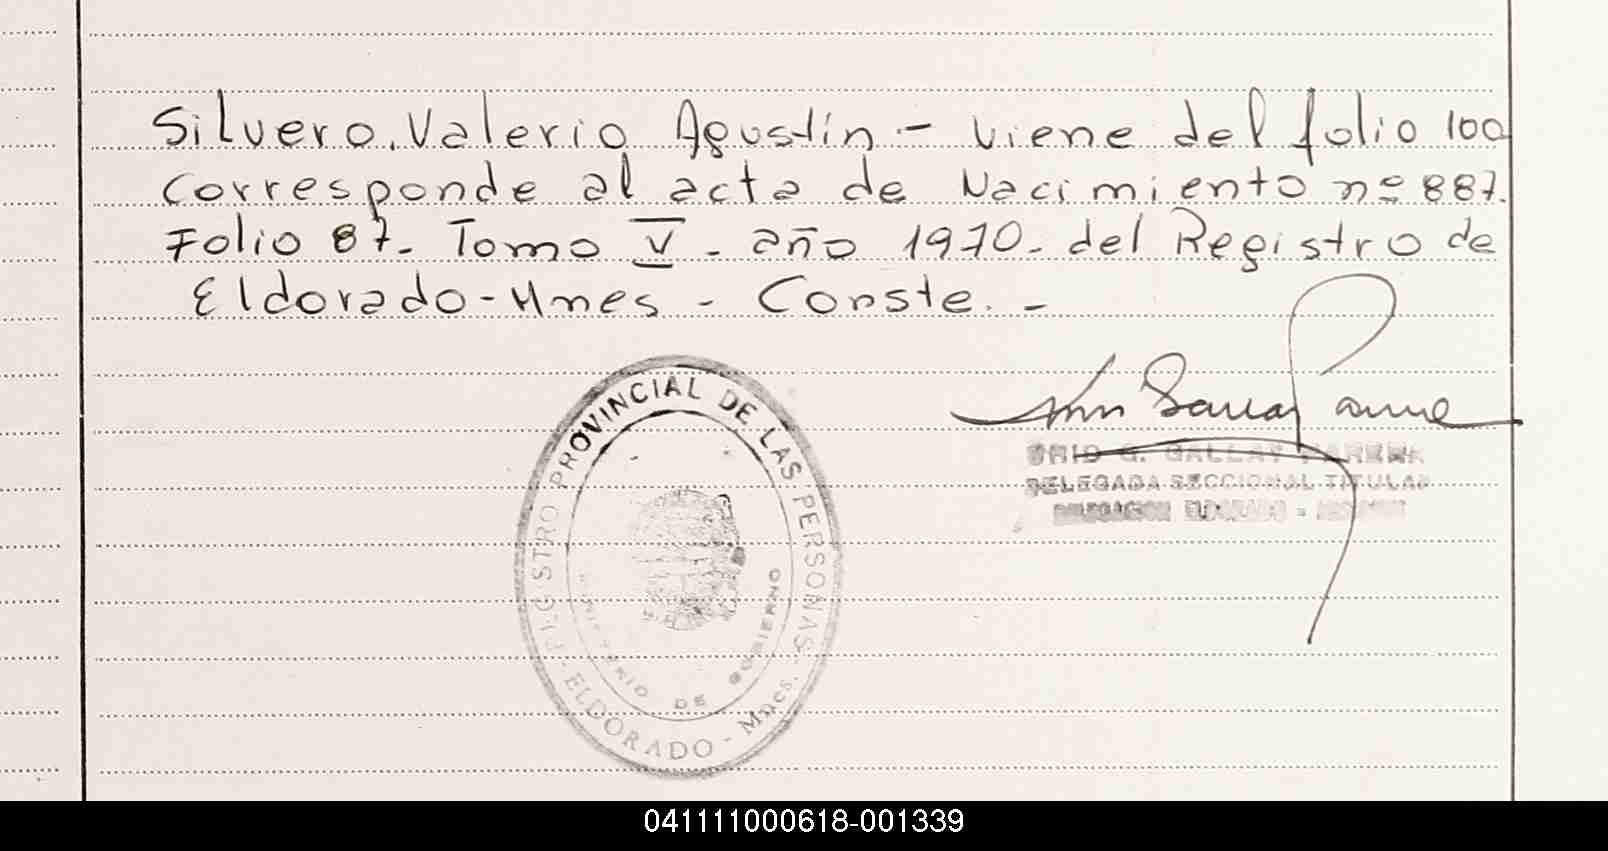 Silvero, Valerio Agustín.- viene del folio 100
Corresponde al acta de Nacimiento nº 887.
Folio 87- Tomo V - año 1970- del Registro de
Eldorado-Mnes - Conste. -
REGISTRO PROVINCIAL DE LAS PERSONAS
MINISTERIO DE GOBIERNO
- ELDORADO - Mnes.
G. GALLAY
DELEGADA SECCIONAL TITULAR
DELEGACION ELDORADO -
041111000618-001339